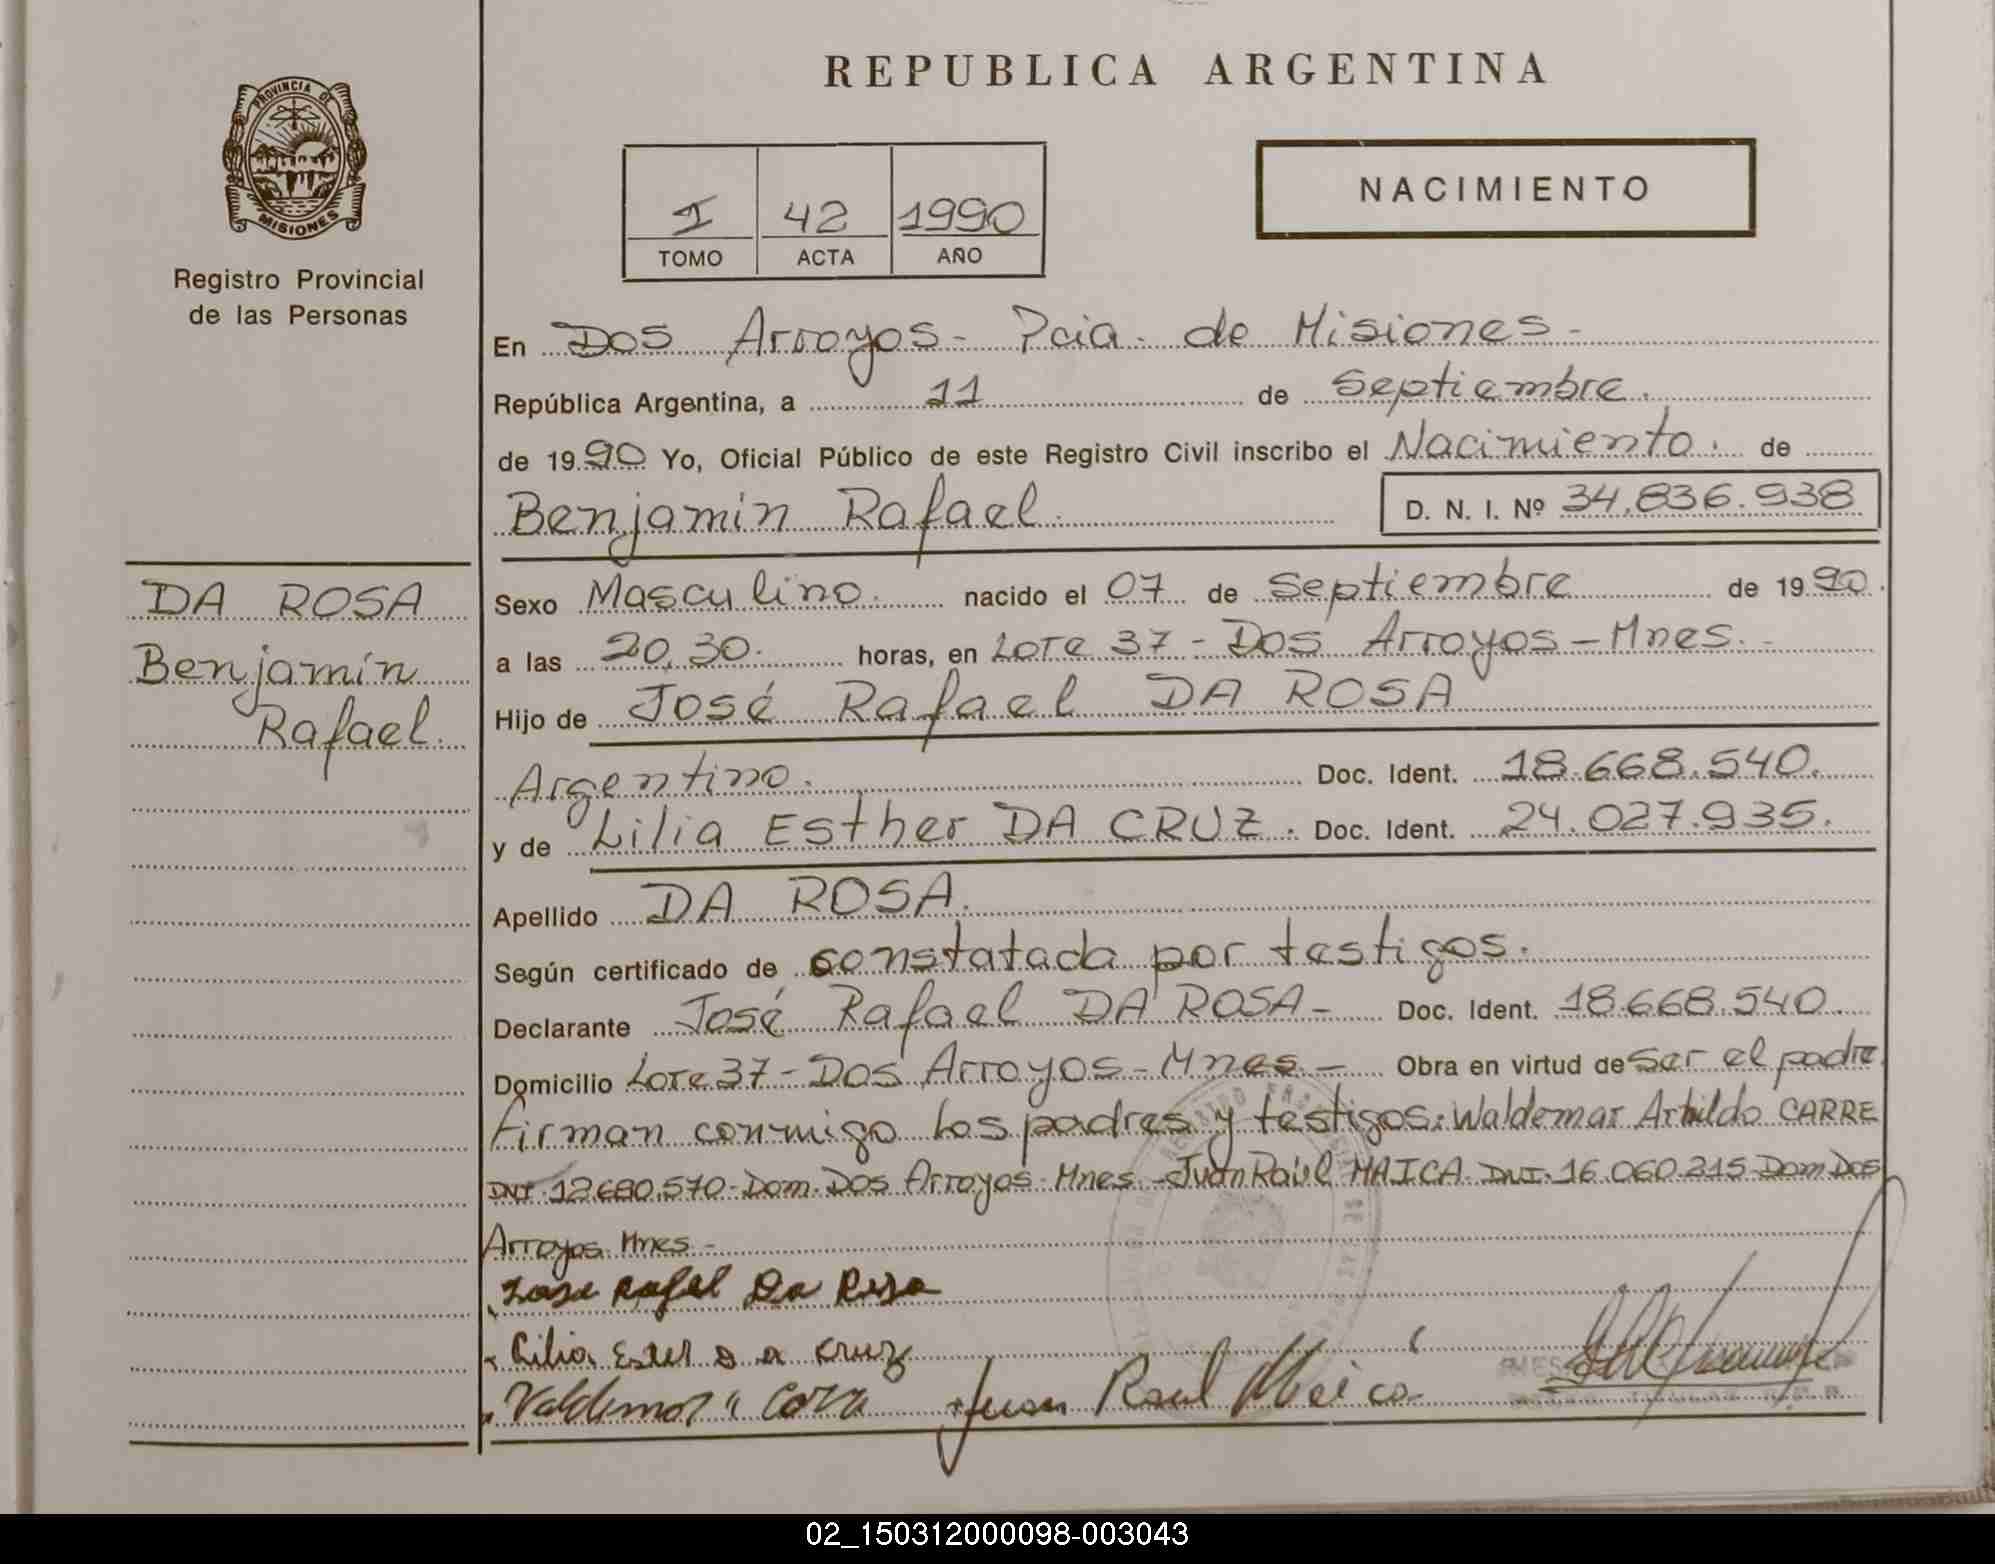 REPUBLICA ARGENTINA
PROVINCIA DE
MISIONES
Registro Provincial
de las Personas
I 42 1990
TOMO ACTA AÑO
NACIMIENTO
DA ROSA
Benjamín
Rafael.
En Dos Arroyos - Pcia. de Misiones -
República Argentina, a 11 de Septiembre.
de 1990 Yo, Oficial Público de este Registro Civil inscribo el Nacimiento. de
Benjamín Rafael. D. N. I. Nº 34.836.938
Sexo Masculino. nacido el 07 de Septiembre de 1990.
a las 20,30. horas, en Lote 37 - Dos Arroyos - Mnes. -
Hijo de José Rafael DA ROSA
Argentino. Doc. Ident. 18.668.540.
y de Lilia Esther DA CRUZ. Doc. Ident. 24.027.935.
Apellido DA ROSA.
Según certificado de constatada por testigos.
Declarante José Rafael DA ROSA - Doc. Ident. 18.668.540.
Domicilio Lote 37 - Dos Arroyos - Mnes - Obra en virtud de Ser el padre
firman conmigo los padres y testigos: Waldemar Arbildo CARRE
DNI. 12.680.570 - Dom. Dos Arroyos - Mnes. - Juan Raúl MAICA. DNI. 16.060.215 Dom Dos
Arroyos. Mnes -
Jose Rafel Da Rosa
Lilia Ester Da Cruz
Juan Raul Meica
02_150312000098-003043